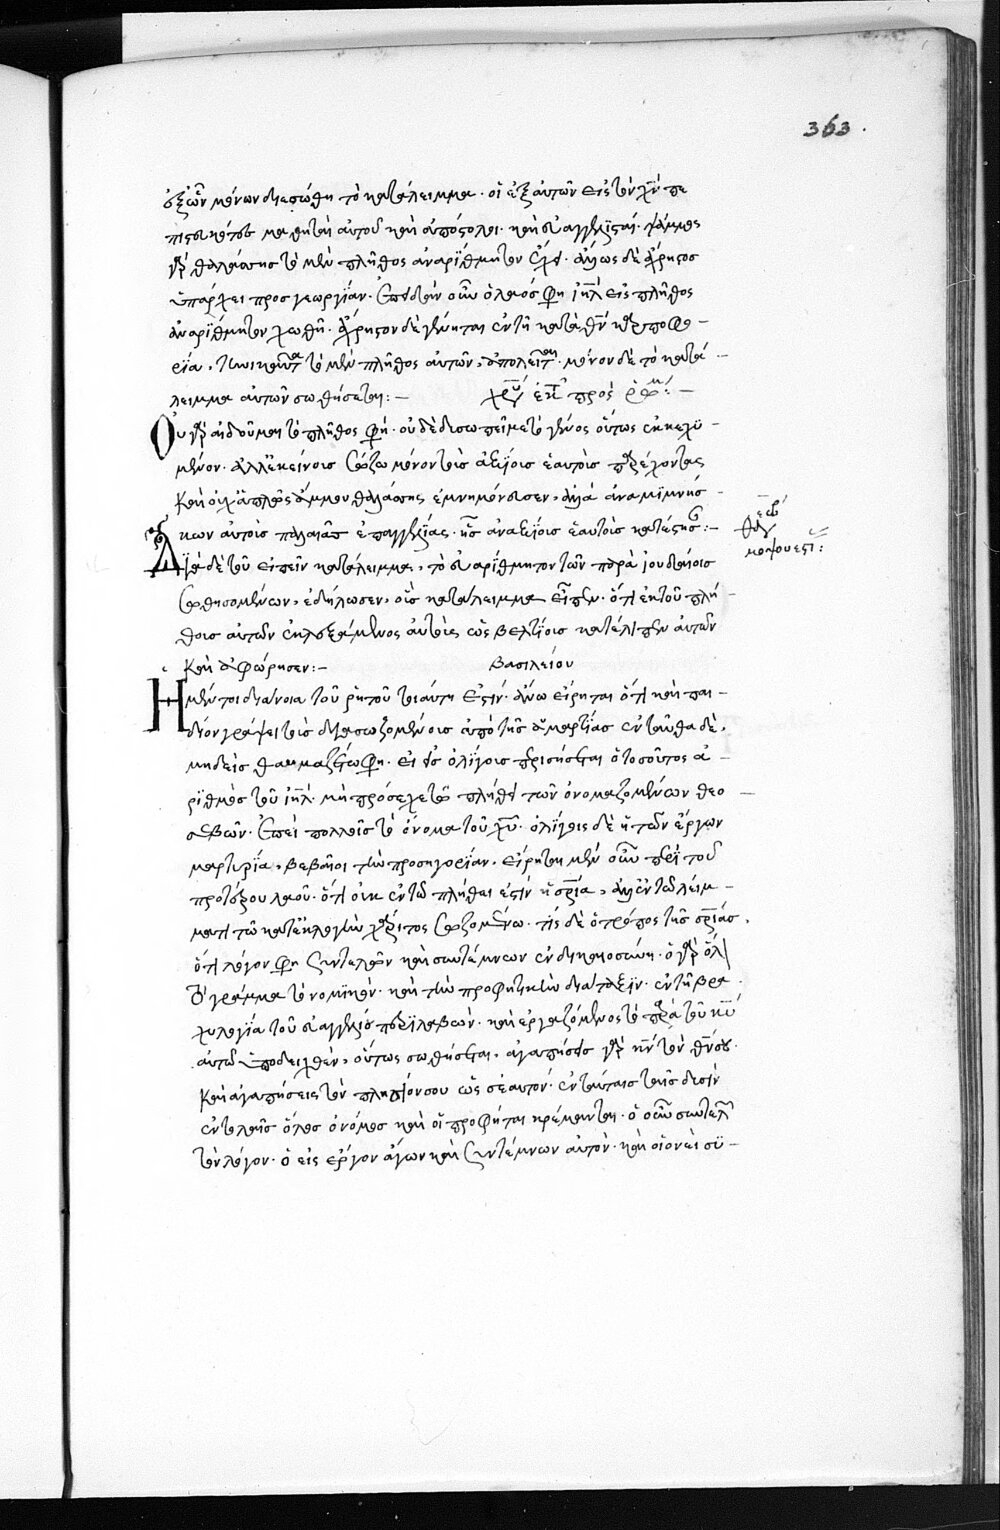 363.
ἐξ ὧν μόνων διεσώθη τὸ κατάλειμμα. οἱ ἐξ αὐτῶν εἰς τὸν χν πε
πιστευκότες μαθηταὶ αὐτοῦ καὶ ἀπόστολοι. καὶ εὐαγγελισταί. ψάμμος
γὰρ θαλάσσης τὸ μὲν πλῆθος ἀναρίθμητον ἔχει. ἄλλως δὲ ἄχρηστος
ὑπάρχει προς γεωργίαν. ἐπειδὴ οὖν ὁ λαός φη ιηλ εἰς πλῆθος
ἀναρίθμητον χωθῆ. ἄχρηστον δὲ γένηται ἐν τῆ κατὰ θν καρποφο -
ρία, τὸ μὲν πλῆθος αὐτῶν, ἀπολεῖται. μόνον δὲ τὸ κατά -
λειμμα αὐτῶν σωθήσεται:-
Οὐ γὰρ αἰδοῦμαι τὸ πλῆθος φη. οὐδὲ δυσωπεῖ με τὸ γένος οὕτως ἐκκεχυ -
μένον. ἀλλ' ἐκείνους σώζω μόνον τοὺς ἀξίους ἑαυτοὺς παρέχοντας
καὶ οὐχ ἁπλῶς ἄμμου θαλάσσης ἐμνημόνευσεν, ἀλλὰ ἀναμιμνήσ -
κων αὐτοὺς παλαιᾶς ἐπαγγελίας. ἧς ἀναξίους ἑαυτοὺς κατέστησαν:-
Διὰ δὲ τοῦ εἰπεῖν κατάλειμμα, τὸ εὐαρίθμητον τῶν παρὰ ἰουδαίοις
σωθησομένων, ἐδήλωσεν, οὓς κατάλειμμα εἶπεν. ὅτι ἐκ τοῦ πλή -
θους αὐτῶν ἐκλεξάμενος αὐτοὺς ὡς βελτίους κατέλιπεν αὐτῶν
καὶ ἀφώρησεν:- βασιλείου
Ἡ μέντοι διάνοια τοῦ ῥητοῦ τοιαύτη ἐστίν. ἄνω εἴρηται ὅτι καὶ παι -
δίον γράψει τοὺς διασωζομένους ἀπὸ τῆς ἁμαρτίας ἐνταῦθα δὲ,
μηδεὶς θαυμαζέτω φη. εἰ εἰς ὀλίγους περιστήσεται ὁ τοσοῦτος ἀ -
ριθμὸς τοῦ ιηλ. μὴ πρόσεχε τῶ πλήθει τῶν ὀνομαζομένων θεο -
σεβῶν. ἐπεὶ πολλοῖς τὸ ὄνομα τοῦ χυ. ὀλίγοις δὲ ἡ τῶν ἔργων
μαρτυρία, βεβαιοῖ τὴν προσηγορίαν. εἴρηται μὲν οὖν περὶ τοῦ
προτέρου λαοῦ. ὅτι οὐκ ἐν τῶ πλήθει ἐστὶν ἡ σρία, ἀλλ' ἐν τῶ λείμ -
ματι τῶ κατ' ἐκλογὴν χάριτος σωζομένω. τίς δὲ ὁ τρόπος τῆς σρίας,
ὅτι λόγον φη συντελῶν καὶ συντέμνων ἐν δικαιοσύνη. ὁ γὰρ ὅλον
τὸ γράμμα τὸ νομικὸν. καὶ τὴν προφητικὴν διάταξιν. ἐν τῆ βρα
χυλογία τοῦ εὐαγγελίου περιλαβὼν. καὶ ἐργαζόμενος τὸ παρὰ τοῦ κυ
αὐτῶ ὑποδειχθὲν, οὕτως σωθήσεται. ἀγαπήσεις γὰρ κν τὸν θν σου.
καὶ ἀγαπήσεις τὸν πλησίον σου ὡς σεαυτόν. ἐν ταύταις ταῖς δυσὶν
ἐντολαῖς ὅλος ὁ νόμος καὶ οἱ προφῆται κρέμανται. ὁ οὖν συντελῶν
τὸν λόγον. ὁ εἰς ἔργον ἄγων καὶ συντέμνων αὐτόν. καὶ οἱονεὶ συ -